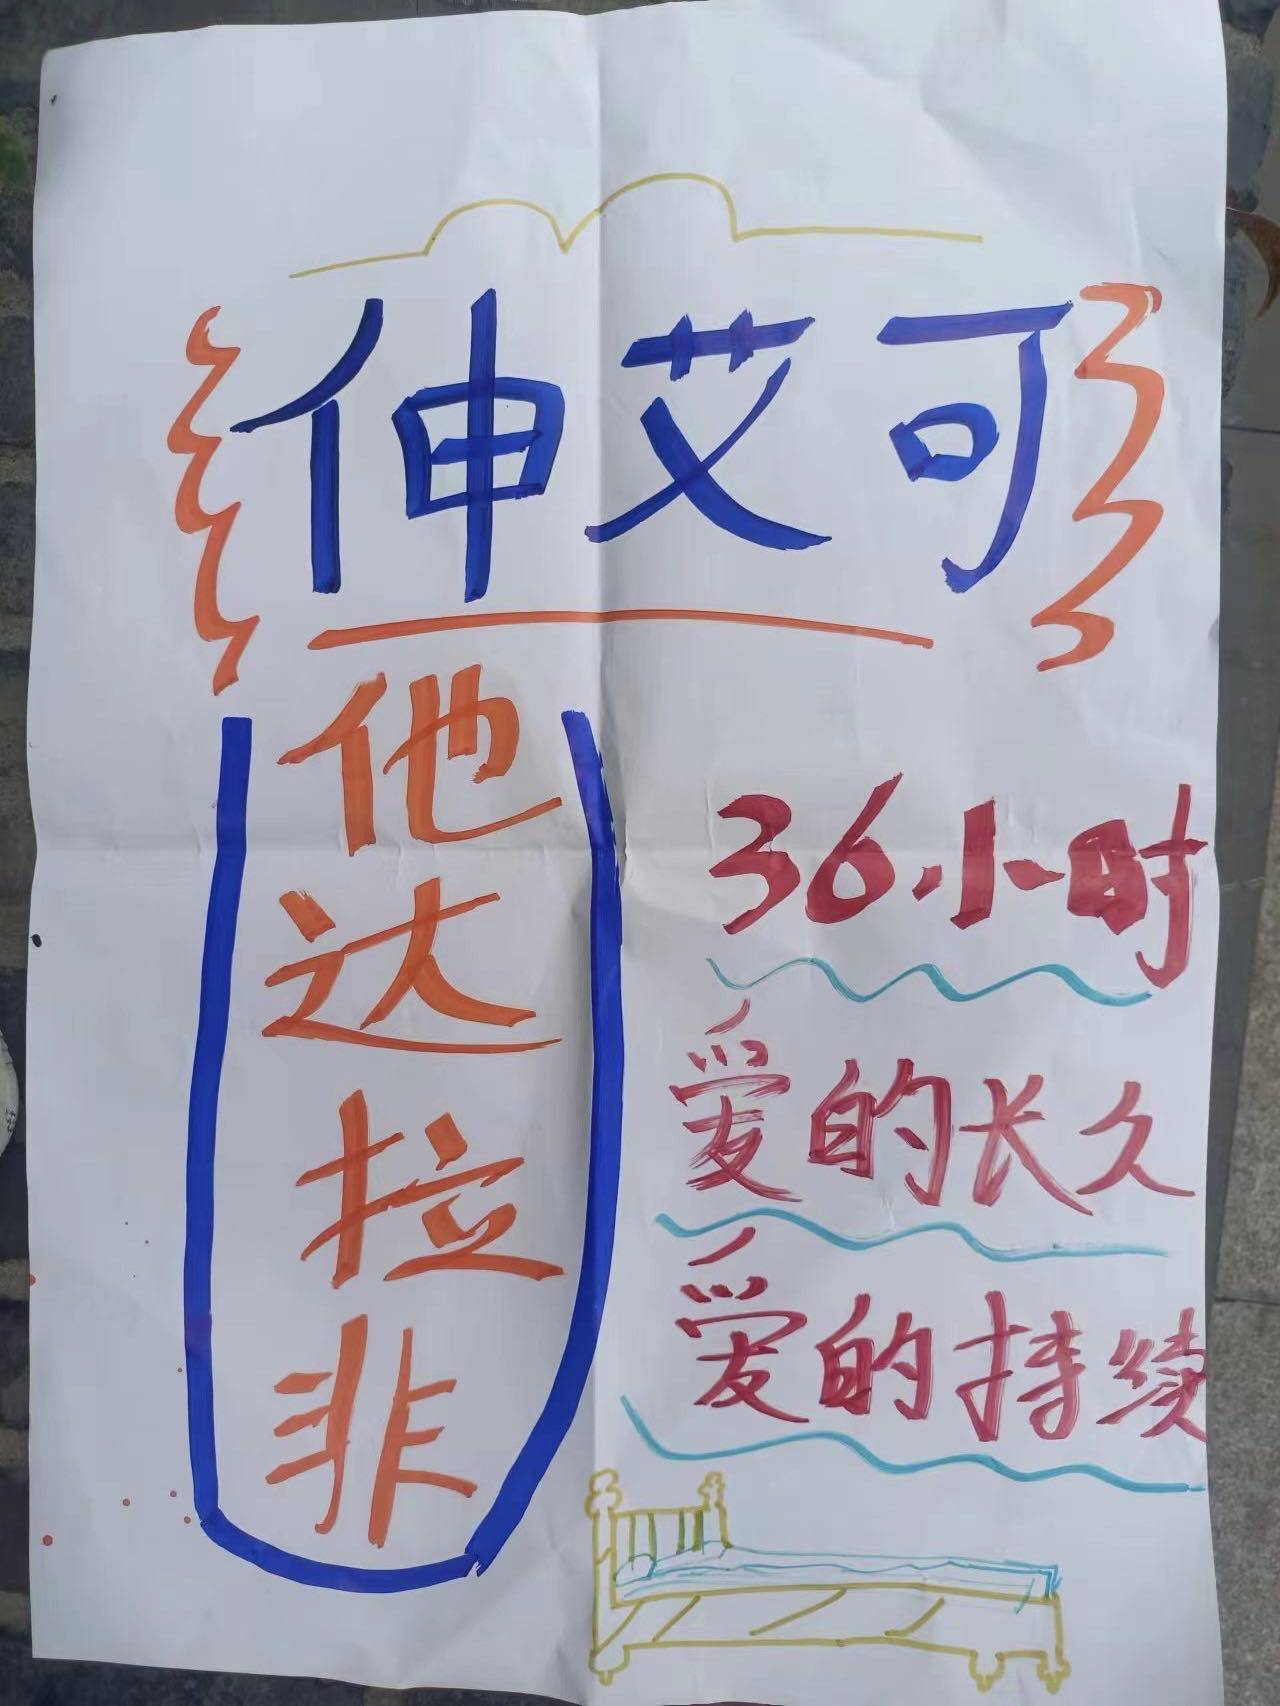 伸艾可
他达拉非
36小时
爱的长久
爱的持续